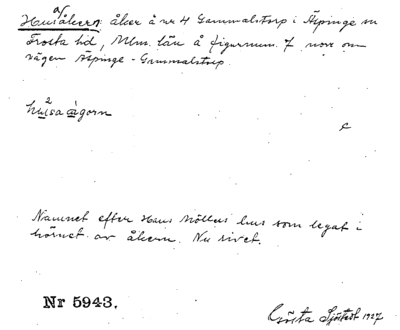 Husåkern åker å nr 4 Gammalstorp i Äspinge sn
Frosta hd, Mlm. län å figurnum. 7 norr om
vägen Äspinge - Gammalstorp.
2
husaågorn
c
Namnet efter Hans Möllers hus som legat i
hörnet av åkern. Nu rivet.
Nr 5943.
Gösta Sjöstedt 1927